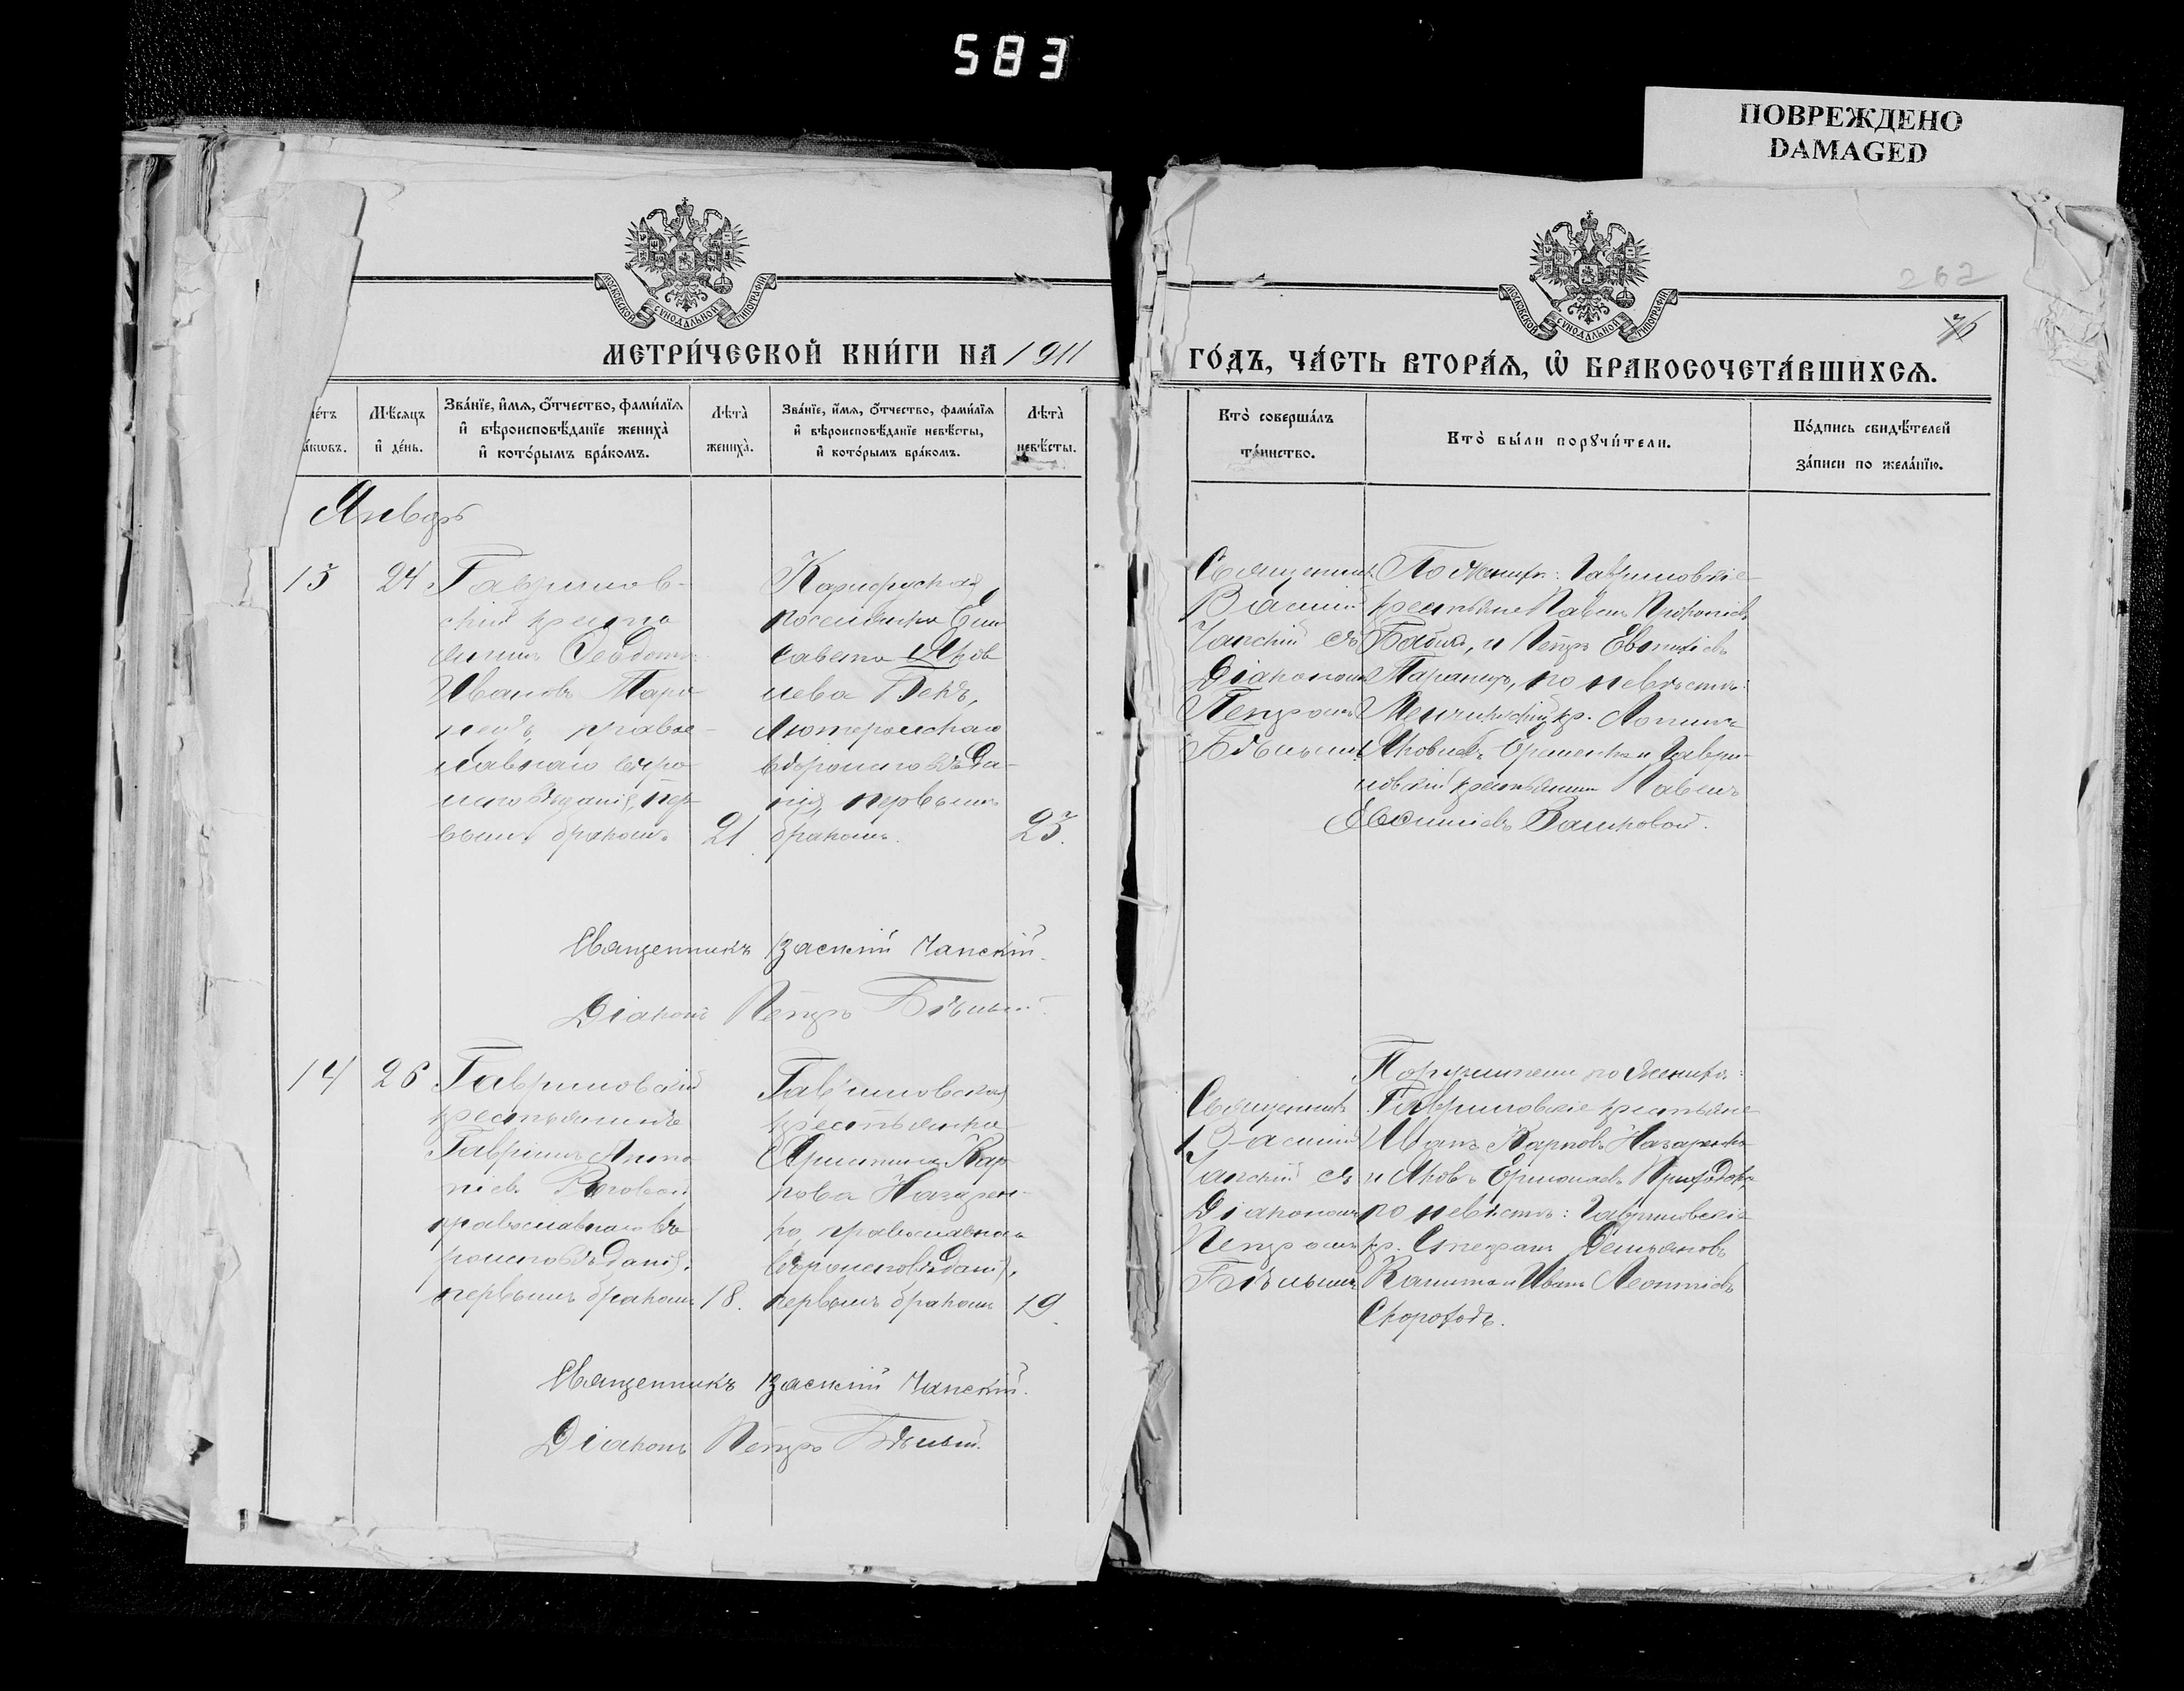 583
ПОВРЕЖДЕНО
DAMAGED
МОСКОВСКОЙ СѴНОДАЛЬНОЙ ТИПОГРАФІИ
МОСКОВСКОЙ СѴНОДАЛЬНОЙ ТИПОГРАФІИ
262
МЕТРИ́ЧЕСКОЙ КНИ́ГИ НА 1911
ГО́ДЪ, ЧА́СТЬ ВТОРА́Ѧ, Ѽ БРАКОСОЧЕТА́ВШИХСѦ.
Мѣ́сѧцъ
и҆ де́нь.
Зва́нїе, и҆́мѧ, ѻ҆́тчество, фами́лїѧ
и҆ вѣроисповѣ́данїе жениха̀
и҆ кото́рымъ бра́комъ.
Лѣта̀
жениха̀.
Зва́нїе, и҆́мѧ, ѻ҆́тчество, фами́лїѧ
и҆ вѣроисповѣ́данїе невѣ́сты,
и҆ кото́рымъ бра́комъ.
Лѣта̀
невѣ́сты.
Кто̀ соверша́лъ
та́инство.
Кто̀ бы́ли порꙋчи́тели.
По́дпись свидѣ́телей
за́писи по жела́нїю.
Январь
13
24
Гаврилов-
скій кресть
янинъ
Ивановъ Тара
нецъ, право-
славнаго вѣро
исповѣданія, пер-
вымъ бракомъ.
21
поселянка Ели
савета Яков
лева Бекъ,
Лютеранскаго
вѣроисповѣда-
нія, первымъ
бракомъ.
23.
Священникъ
Василій
Чапскій съ
Діакономъ
Петромъ
Бѣлымъ.
По женихѣ: Гавриловскіе
крестьяне Павелъ Прокопіевъ
Бабич, и Петръ Евтихіевъ
Таранецъ, по невѣстѣ:
кр. Логинъ
Яковлевъ Ерешенко и Гаври-
ловскій крестьянинъ Павелъ
Башковой.
Священникъ Василій Чапскій.
Діаконъ Петръ Бѣлый.
14
26
Гавриловскій
крестьянинъ
Гавріилъ Анто
ніевъ Роговой
православнаго вѣ
роисповѣданія,
первымъ бракомъ
18.
Гавриловская
крестьянка
Христина Кар
пова Назарен-
ко, православнаго
вѣроисповѣданія,
первымъ бракомъ
19.
Священникъ
Василій
Чапскій съ
Діакономъ
Петромъ
Бѣлымъ
Поручители по женихѣ:
Гавриловскіе крестьяне
Иванъ Карповъ Назаренко
и Яковъ Ермолаевъ Приходько,
по невѣстѣ: Гавриловскіе
кр. Стефанъ Демьяновъ
Калита и Иванъ Леонтіевъ
Скороходъ.
Священникъ Василій Чапскій.
Діаконъ Петръ Бѣлый.